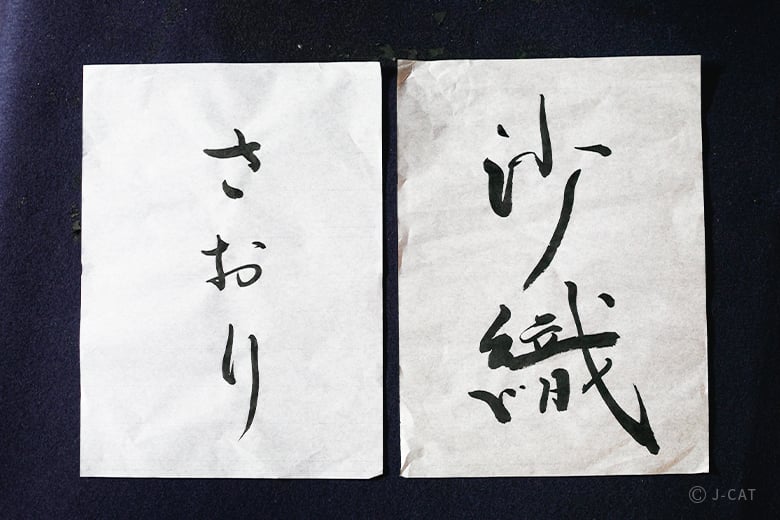 さおり
沙織
© J-CAT